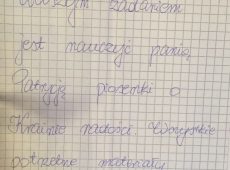 Waszym zadaniem
jest nauczyć panią
Patrycję piosenki o
Krainie radości. Wszystkie
potrzebne materiały